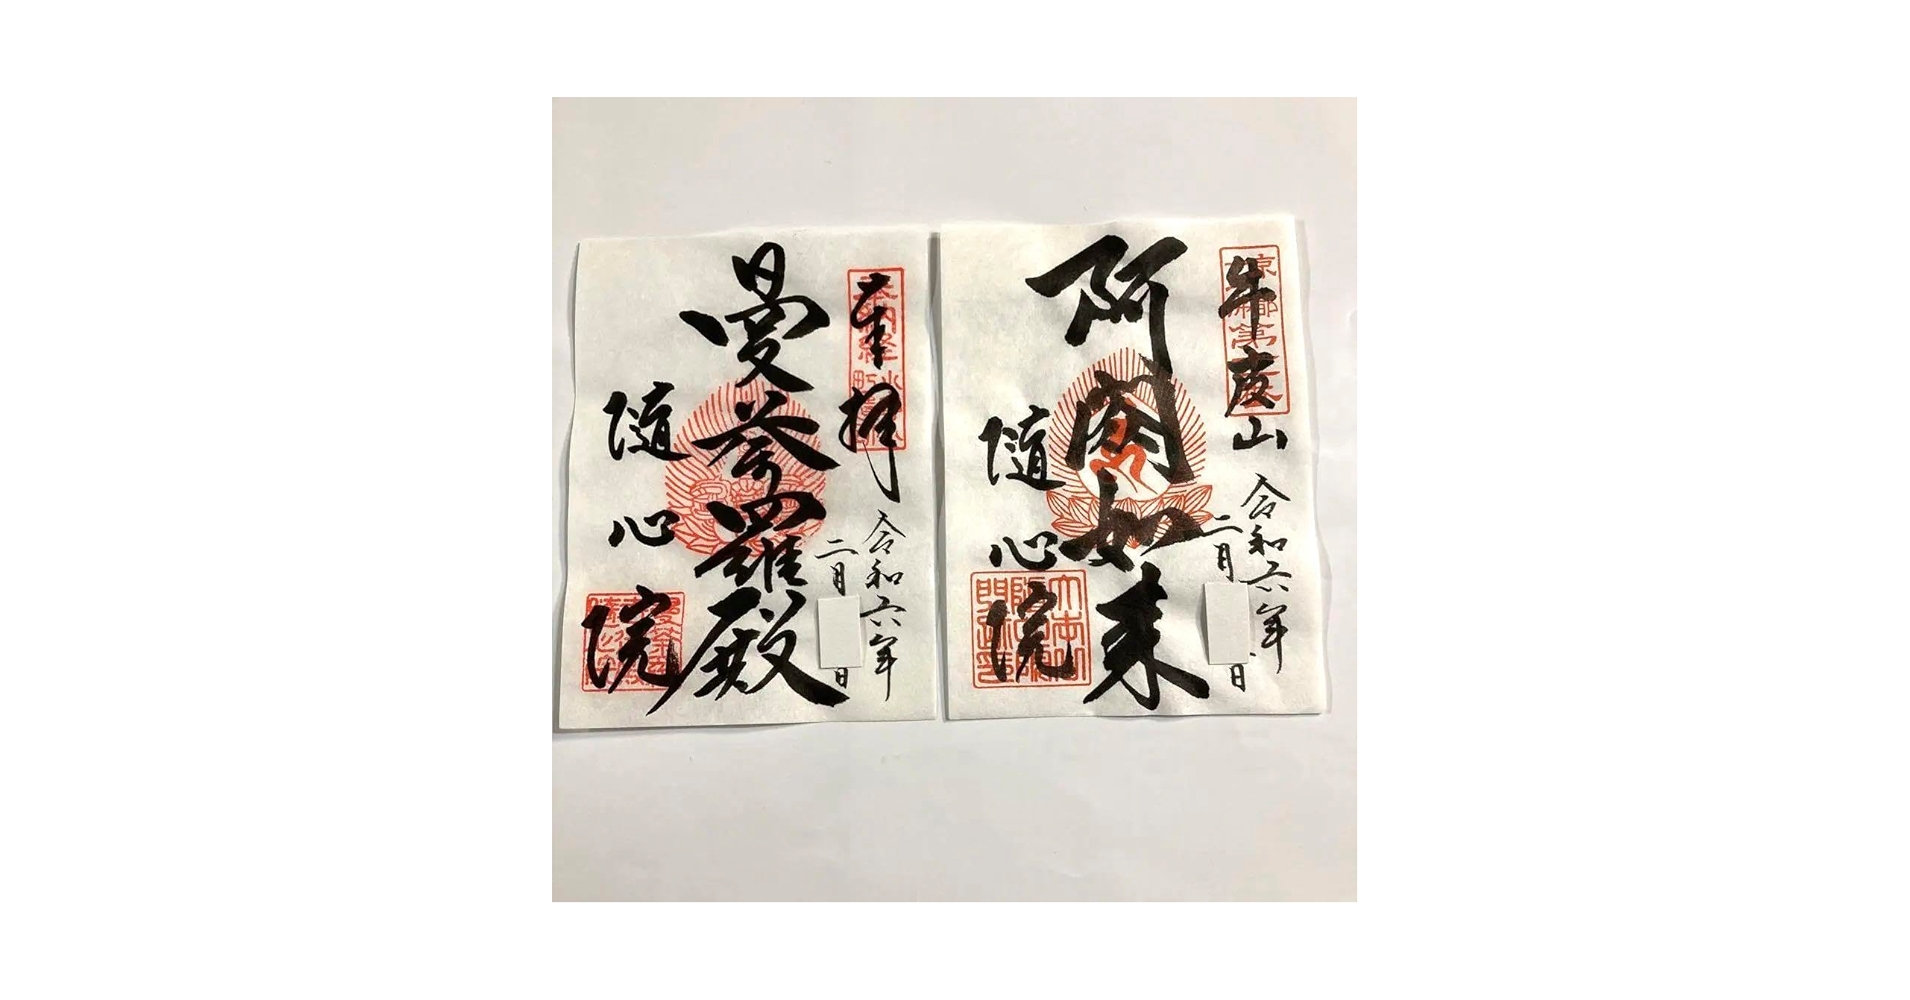 牛皮山
令和六年
二月 日
阿閦如来
隨心院
奉拝
奉納経
令和六年
二月 日
曼荼羅殿
隨心院